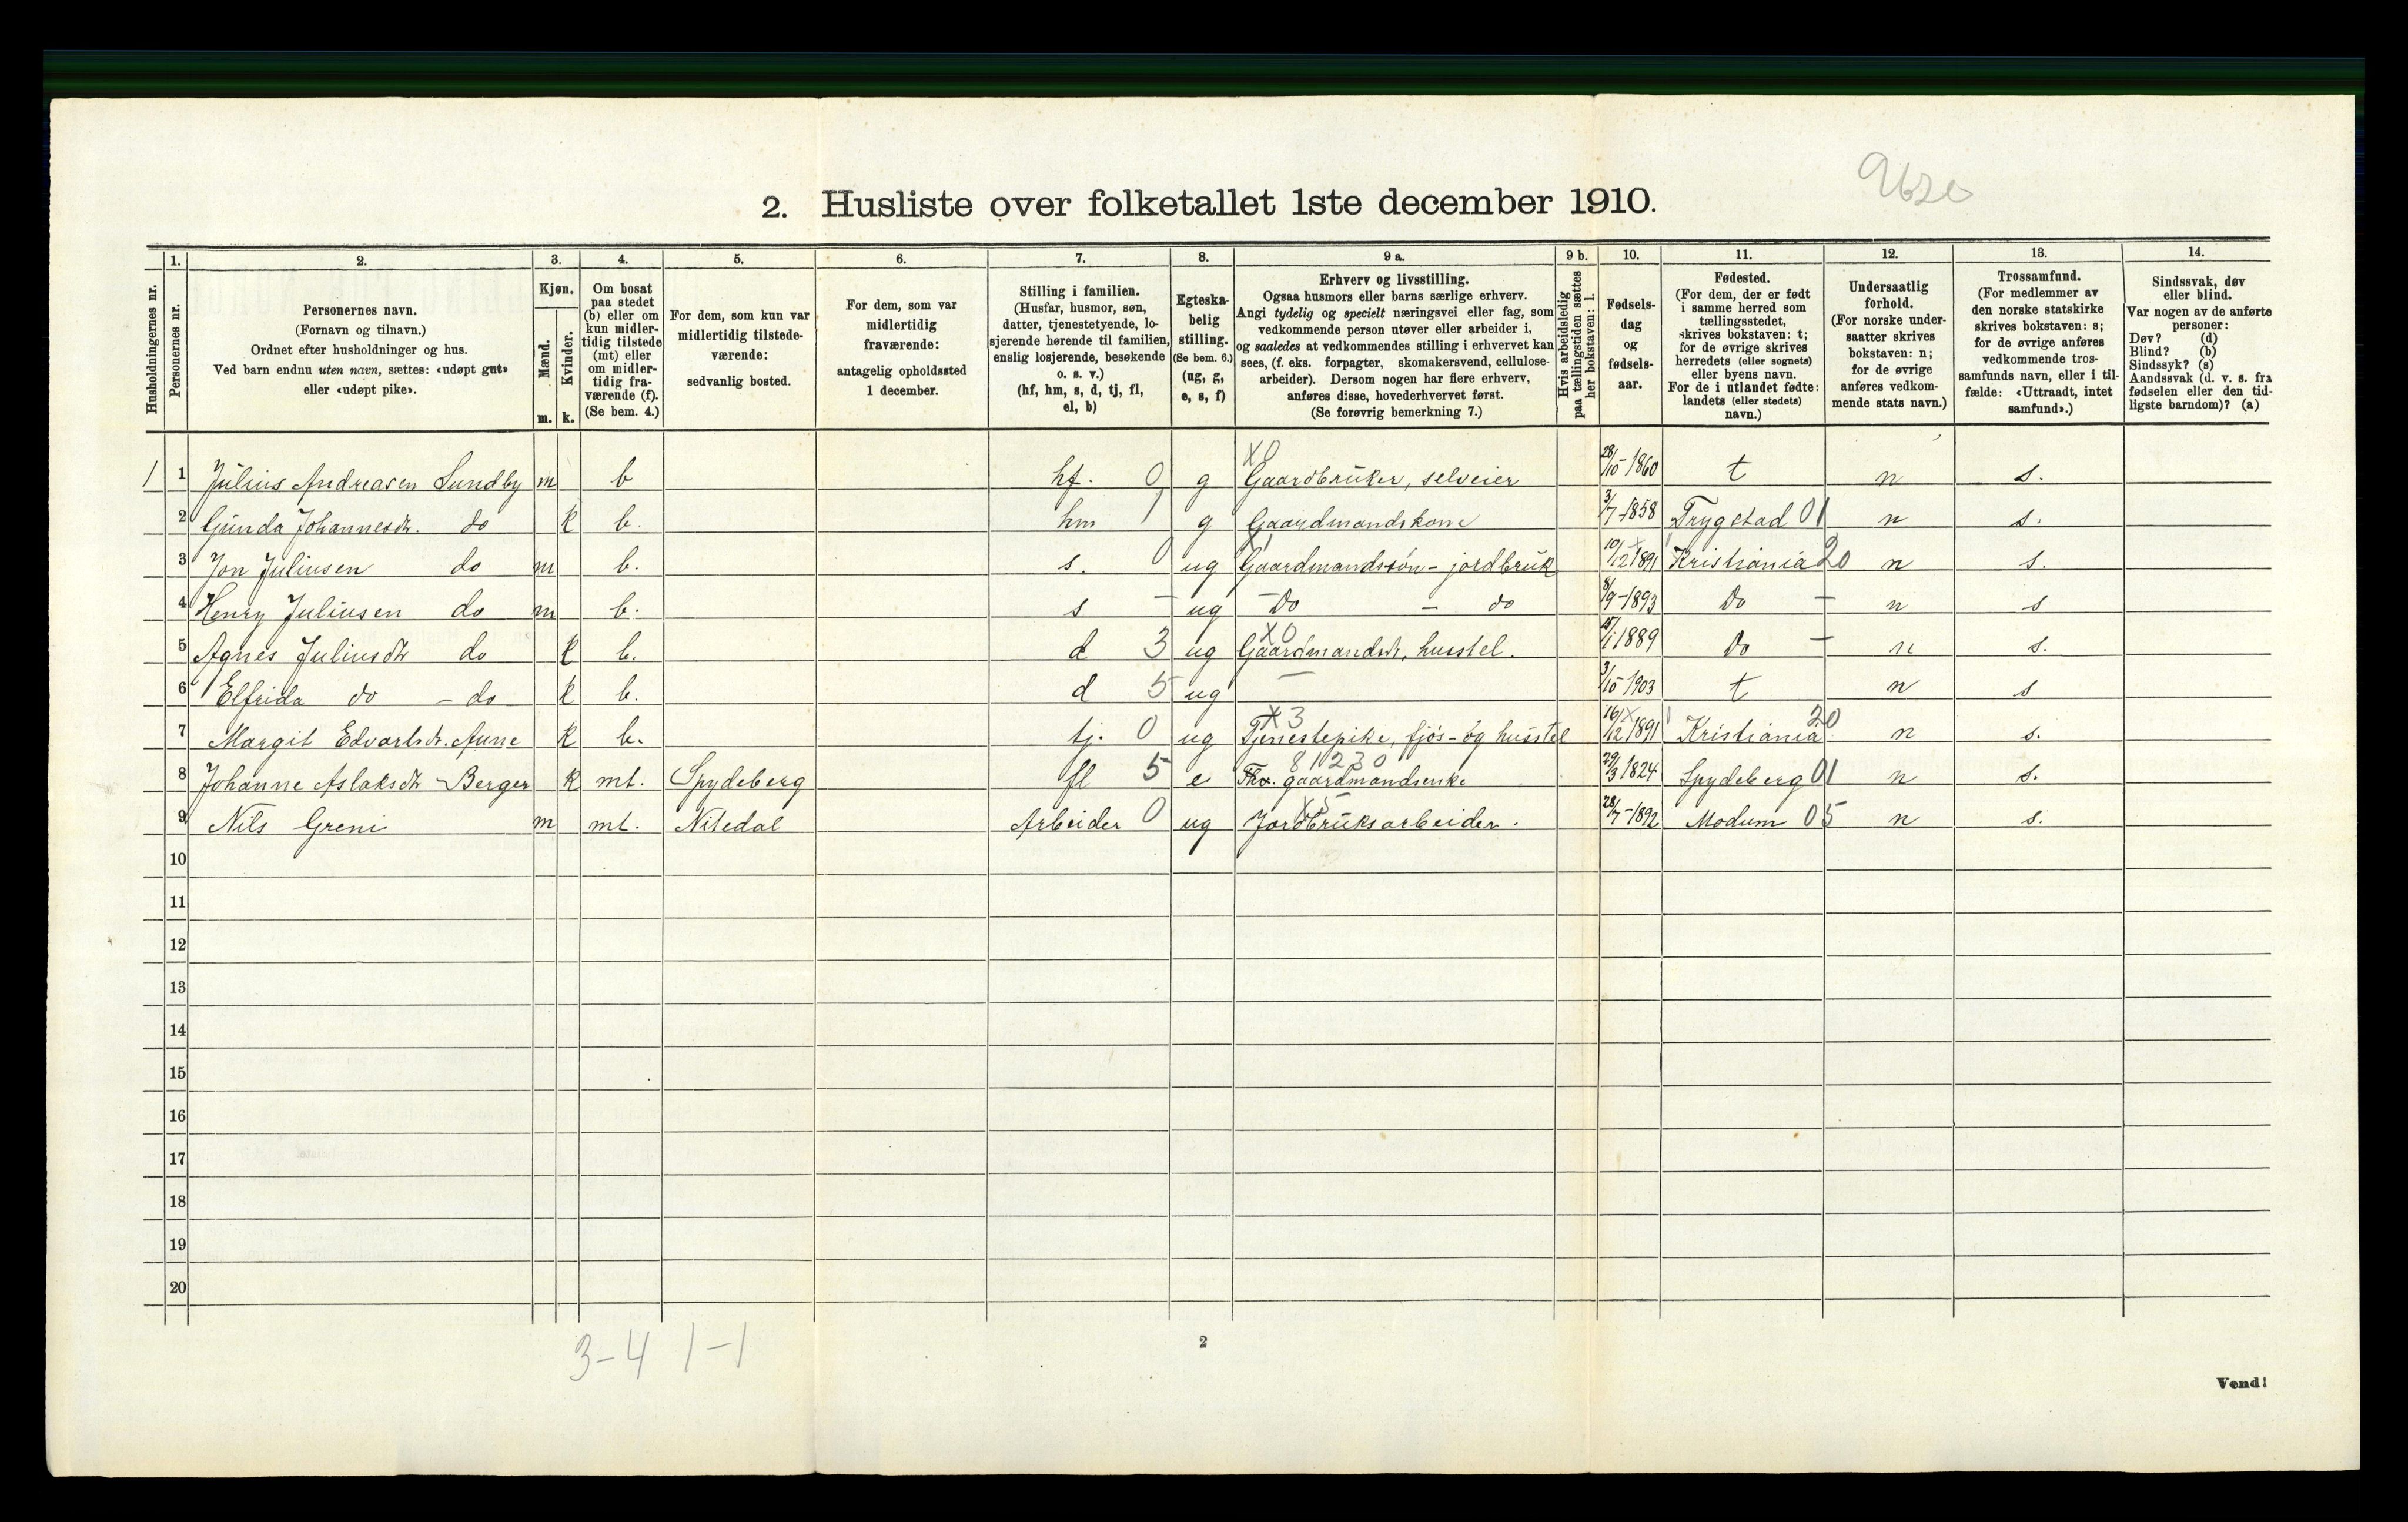 9620
2. Husliste over folketallet 1ste december 1910.
Husholdningernes nr.
1.
Personernes nr.
2.
Personernes navn.
(Fornavn og tilnavn.)
Ordnet efter husholdninger og hus.
Ved barn endnu uten navn, sættes: «udøpt gut»
eller «udøpt pike».
3.
Kjøn.
Mænd.
m.
Kvinder.
k.
4.
Om bosat
paa stedet
(b) eller om
kun midler-
tidig tilstede
(mt) eller
om midler-
tidig fra-
værende (f).
(Se bem. 4.)
5.
For dem, som kun var
midlertidig tilstede-
værende:
sedvanlig bosted.
6.
For dem, som var
midlertidig
fraværende:
antagelig opholdssted
1 december.
7.
Stilling i familien.
(Husfar, husmor, søn,
datter, tjenestetyende, lo-
sjerende hørende til familien,
enslig losjerende, besøkende
o. s. v.)
(hf, hm, s, d, tj, fl,
el, b)
8.
Egteska-
belig
stilling.
(Se bem. 6.)
(ug, g,
e, s, f)
9 a.
Erhverv og livsstilling.
Ogsaa husmors eller barns særlige erhverv.
Angi tydelig og specielt næringsvei eller fag, som
vedkommende person utøver eller arbeider i,
og saaledes at vedkommendes stilling i erhvervet kan
sees, (f. eks. forpagter, skomakersvend, cellulose-
arbeider). Dersom nogen har flere erhverv,
anføres disse, hovederhvervet først.
(Se forøvrig bemerkning 7.)
9 b.
Hvis arbeidsledig
paa tællingstiden sættes
her bokstaven: l.
10.
Fødsels-
dag
og
fødsels-
aar.
11.
Fødested.
(For dem, der er født
i samme herred som
tællingsstedet,
skrives bokstaven: t;
for de øvrige skrives
herredets (eller sognets)
eller byens navn.
For de i utlandet fødte:
landets (eller stedets)
navn.)
12.
Undersaatlig
forhold.
(For norske under-
saatter skrives
bokstaven: n;
for de øvrige
anføres vedkom-
mende stats navn.)
13.
Trossamfund.
(For medlemmer av
den norske statskirke
skrives bokstaven: s;
for de øvrige anføres
vedkommende tros-
samfunds navn, eller i til-
fælde: «Uttraadt, intet
samfund».)
14.
Sindssvak, døv
eller blind.
Var nogen av de anførte
personer:
Døv? (d)
Blind? (b)
Sindssyk? (s)
Aandssvak (d. v. s. fra
fødselen eller den tid-
ligste barndom)? (a)
X0
1 1 Julius Andreasen Sundby m b hf. 0 g Gaardbruker, selveier 28/10-1860 t n s.
2 Gunda Johannesdt. do k b. hm 1 g Gaardmandskone 3/7-1858 Trygstad 01 n s.
X1
3 Jon Juliusen do m b. s. 0 ug Gaardmandssøn - jordbruk 10/12 1891 Kristiania 20 n s.
4 Henry Juliusen do m b. s - ug Do - do 8/9-1893 Do - n s
X0
5 Agnes Juliusdt do k b. d 3 ug Gaardmandsdt, husstel. 15/1 1889 Do - n s.
6 Elfrida do - do k b. d 5 ug - 3/10 1903 t n s
X3
7 Margit Edvartsdt. Aune k b. tj. 0 ug Tjenestepike, fjøs- og husstel 16/12 1891 Kristiania 20 n s.
81230
8 Johanne Aslaksdt - Berger k mt. Spydeberg fl 5 e gaardmandsenke 29/3 1824 Spydeberg 01 n s.
X5
9 Nils Greni m mt. Nitedal Arbeider 0 ug Jordbruksarbeider. 28/7-1892 Modum 05 n s.
10
11
12
13
14
15
16
17
18
19
20
3-4 1-1
2
Vend!